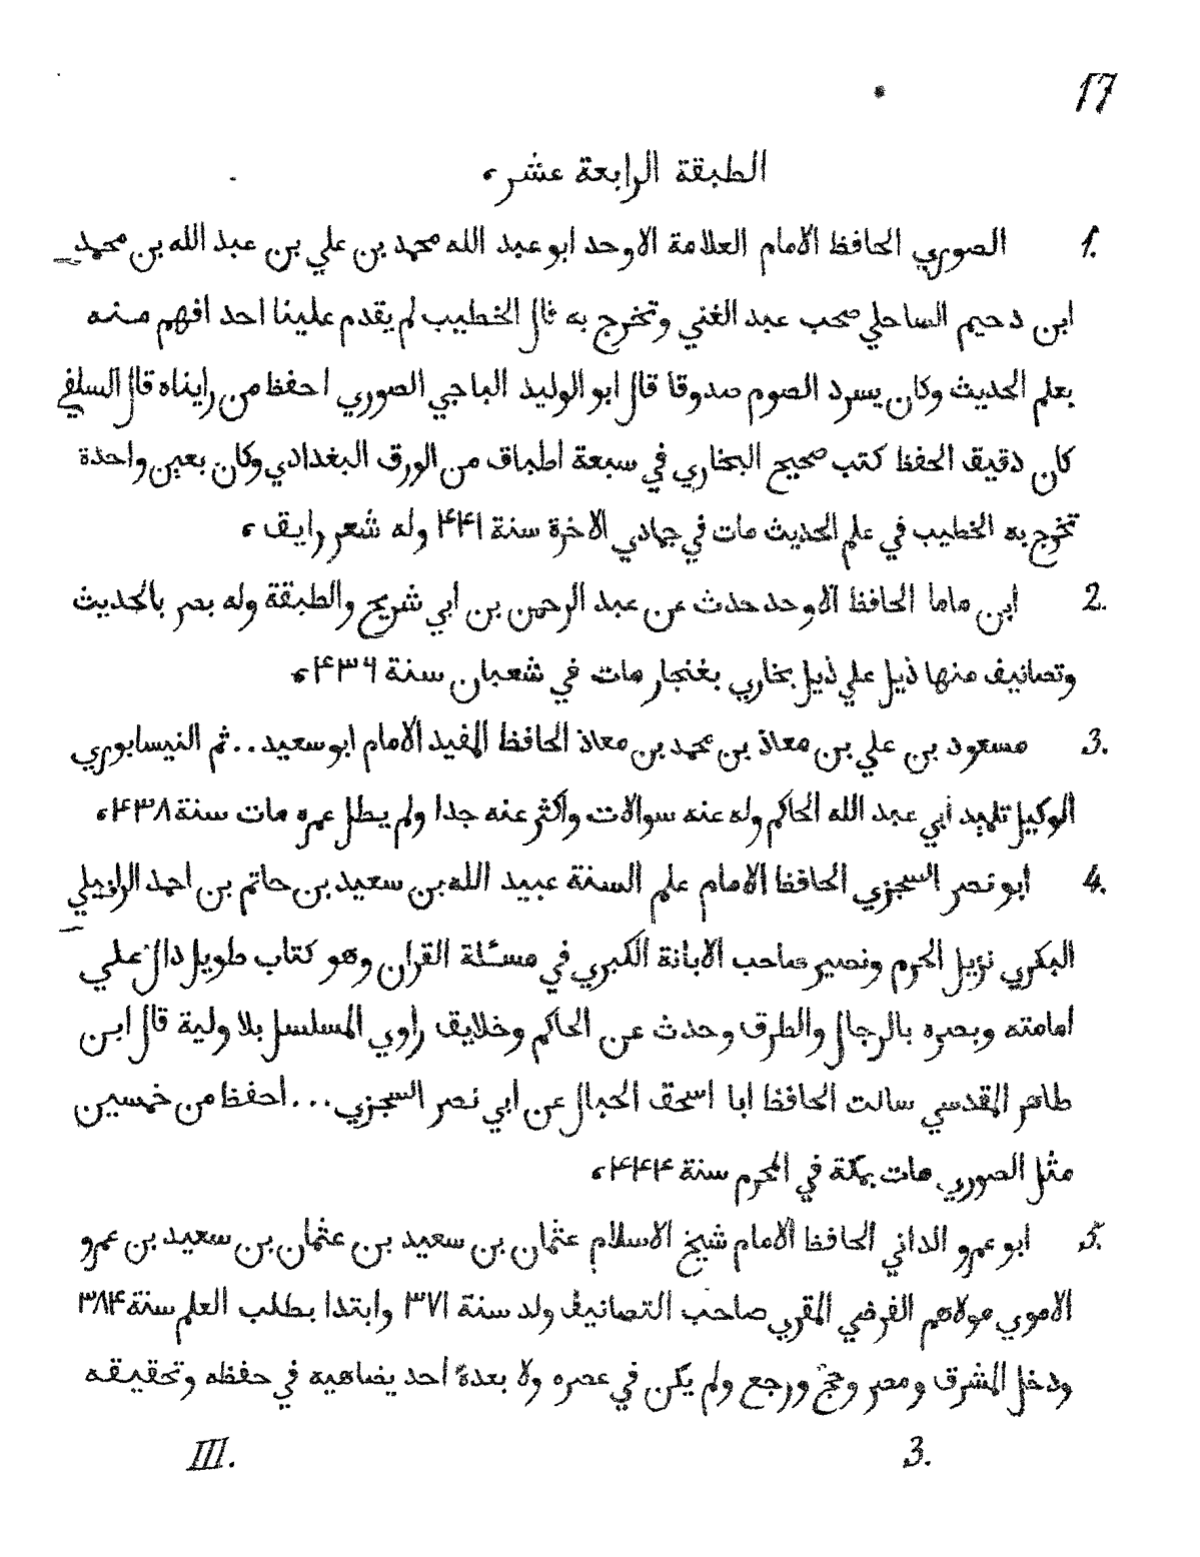 17
الطبقة الرابعة عشر،
1. الصوري الحافظ الامام العلامة الاوحد ابو عبد الله محمد بن علي بن عبد الله بن محمد
ابن دحيم الساحلي صحب عبد الغني وتخرج به قال الخطيب لم يقدم علينا احد افهم منه
بعلم الحديث وكان يسرد الصوم صدوقا قال ابو الوليد الباجي الصوري احفظ من رايناه قال السلفي
كان دقيق الحفظ كتب صحيح البخاري في سبعة اطباق من الورق البغدادي وكان بعين واحدة
تخرج به الخطيب في علم الحديث مات في جمادي الاخرة سنة ۴۴۱ وله شعر رايق،
2. ابن ماما الحافظ الاوحد حدث عن عبد الرحمن بن ابي شريح والطبقة وله بصر بالحديث
وتصانيف منها ذيل علي ذيل بخاري بغنجار مات في شعبان سنة ۴۳۶،
3. مسعود بن علي بن معاذ بن محمد بن معاذ الحافظ المفيد الامام ابو سعيد.. ثم النيسابوري
الوكيل تلميذ أبي عبد الله الحاكم وله عنه سوالات واكثر عنه جدا ولم يطل عمره مات سنة ۴۳۸،
4. ابو نصر السجزي الحافظ الامام علم السنة عبيد الله بن سعيد بن حاتم بن احمد الرافيلي
البكري نزيل الحرم ونصير صاحب الابانة الكبري في مسئلة القران وهو كتاب طويل دال علي
امامته وبصره بالرجال والطرق وحدث عن الحاكم وخلايق راوي المسلسل بلا ولية قال ابن
طاهر المقدسي سالت الحافظ ابا اسحق الحبال عن ابي نصر السجزي... احفظ من خمسين
مثل الصوري مات بمكة في المحرم سنة ۴۴۴،
5. ابو عمرو الداني الحافظ الامام شيخ الاسلام عثمان بن سعيد بن عثمان بن سعيد بن عمرو
الاموي مولاهم الفرضي المقري صاحب التصانيف ولد سنة ۳۷۱ وابتدا بطلب العلم سنة ۳۸۴
ودخل المشرق ومصر وحج ورجع ولم يكن في عصره ولا بعدة احد يضاهيه في حفظه وتحقيقه
III. 3.